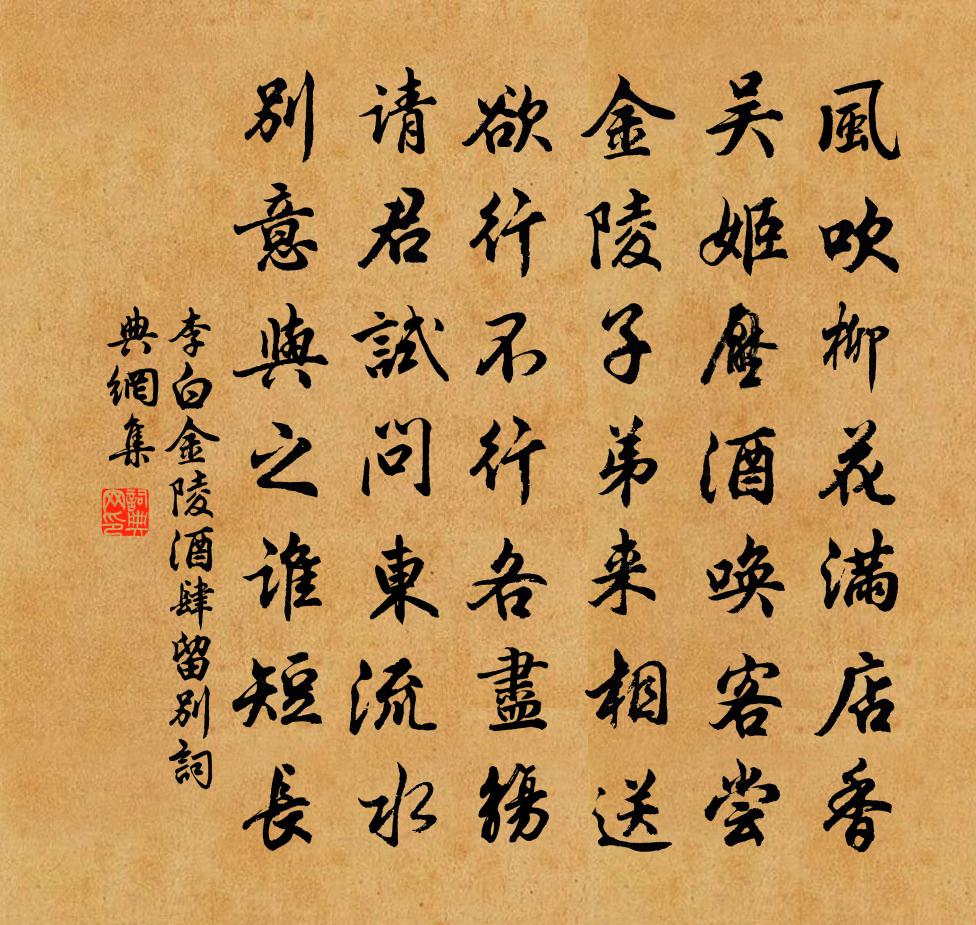 風吹柳花滿店香
吴姬壓酒唤客尝
金陵子弟来相送
欲行不行各盡觴
请君試問東流水
別意與之谁短長
李白金陵酒肆留別詞
典網集
詞典网印